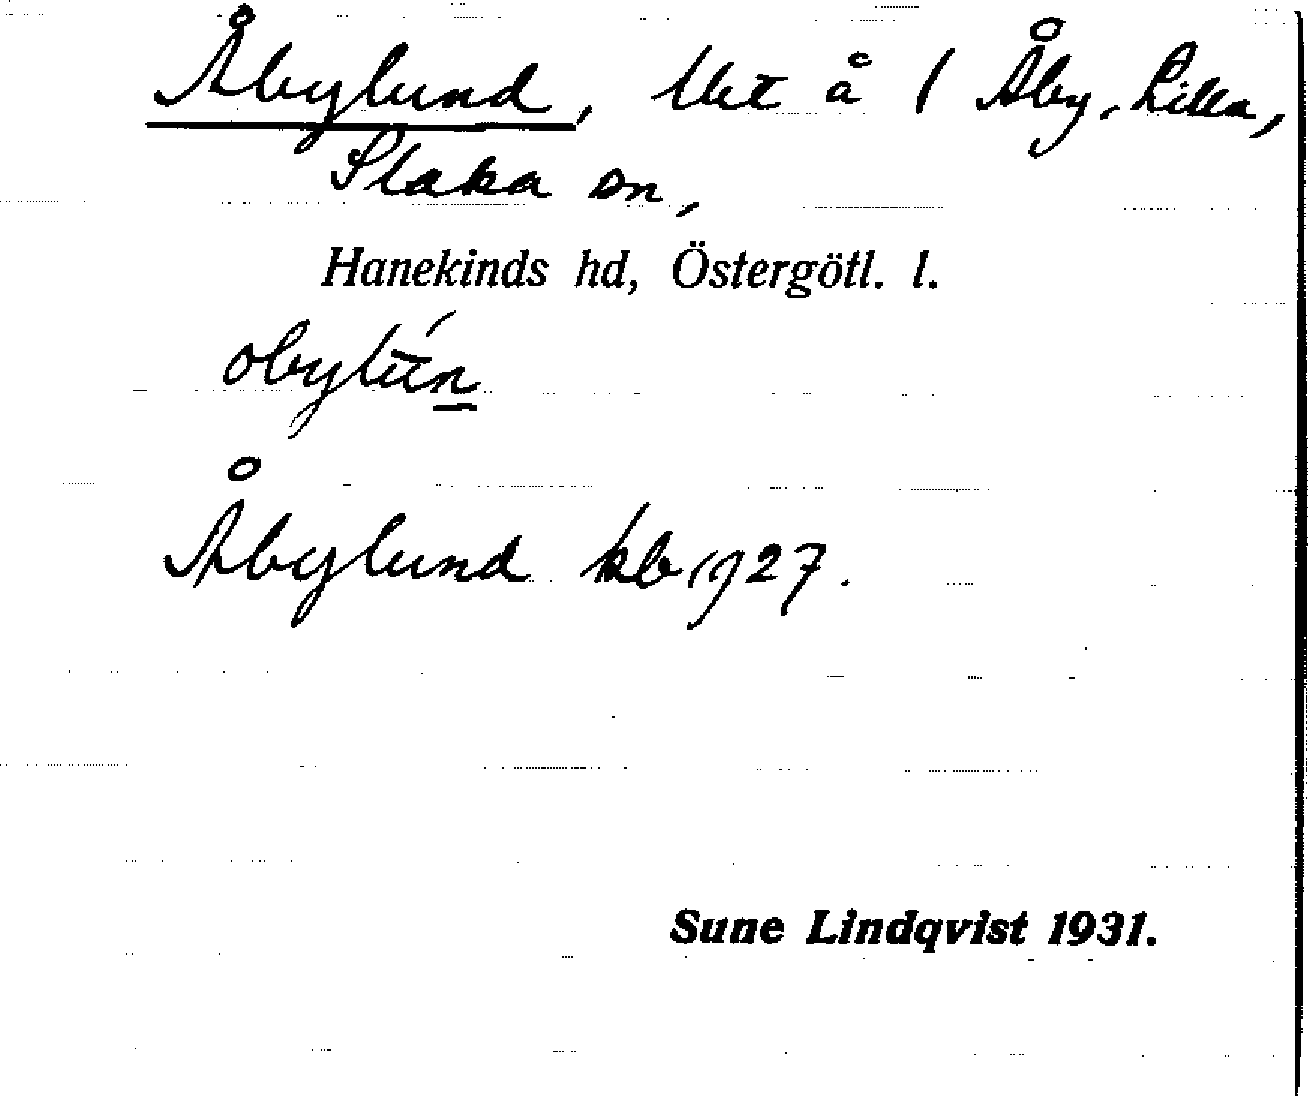 Åbylund, Uet å 1 Åby, Lilla,
Slaka sn,
Hanekinds hd, Östergötl. l.
Åbylund kb 1927.
Sune Lindqvist 1931.